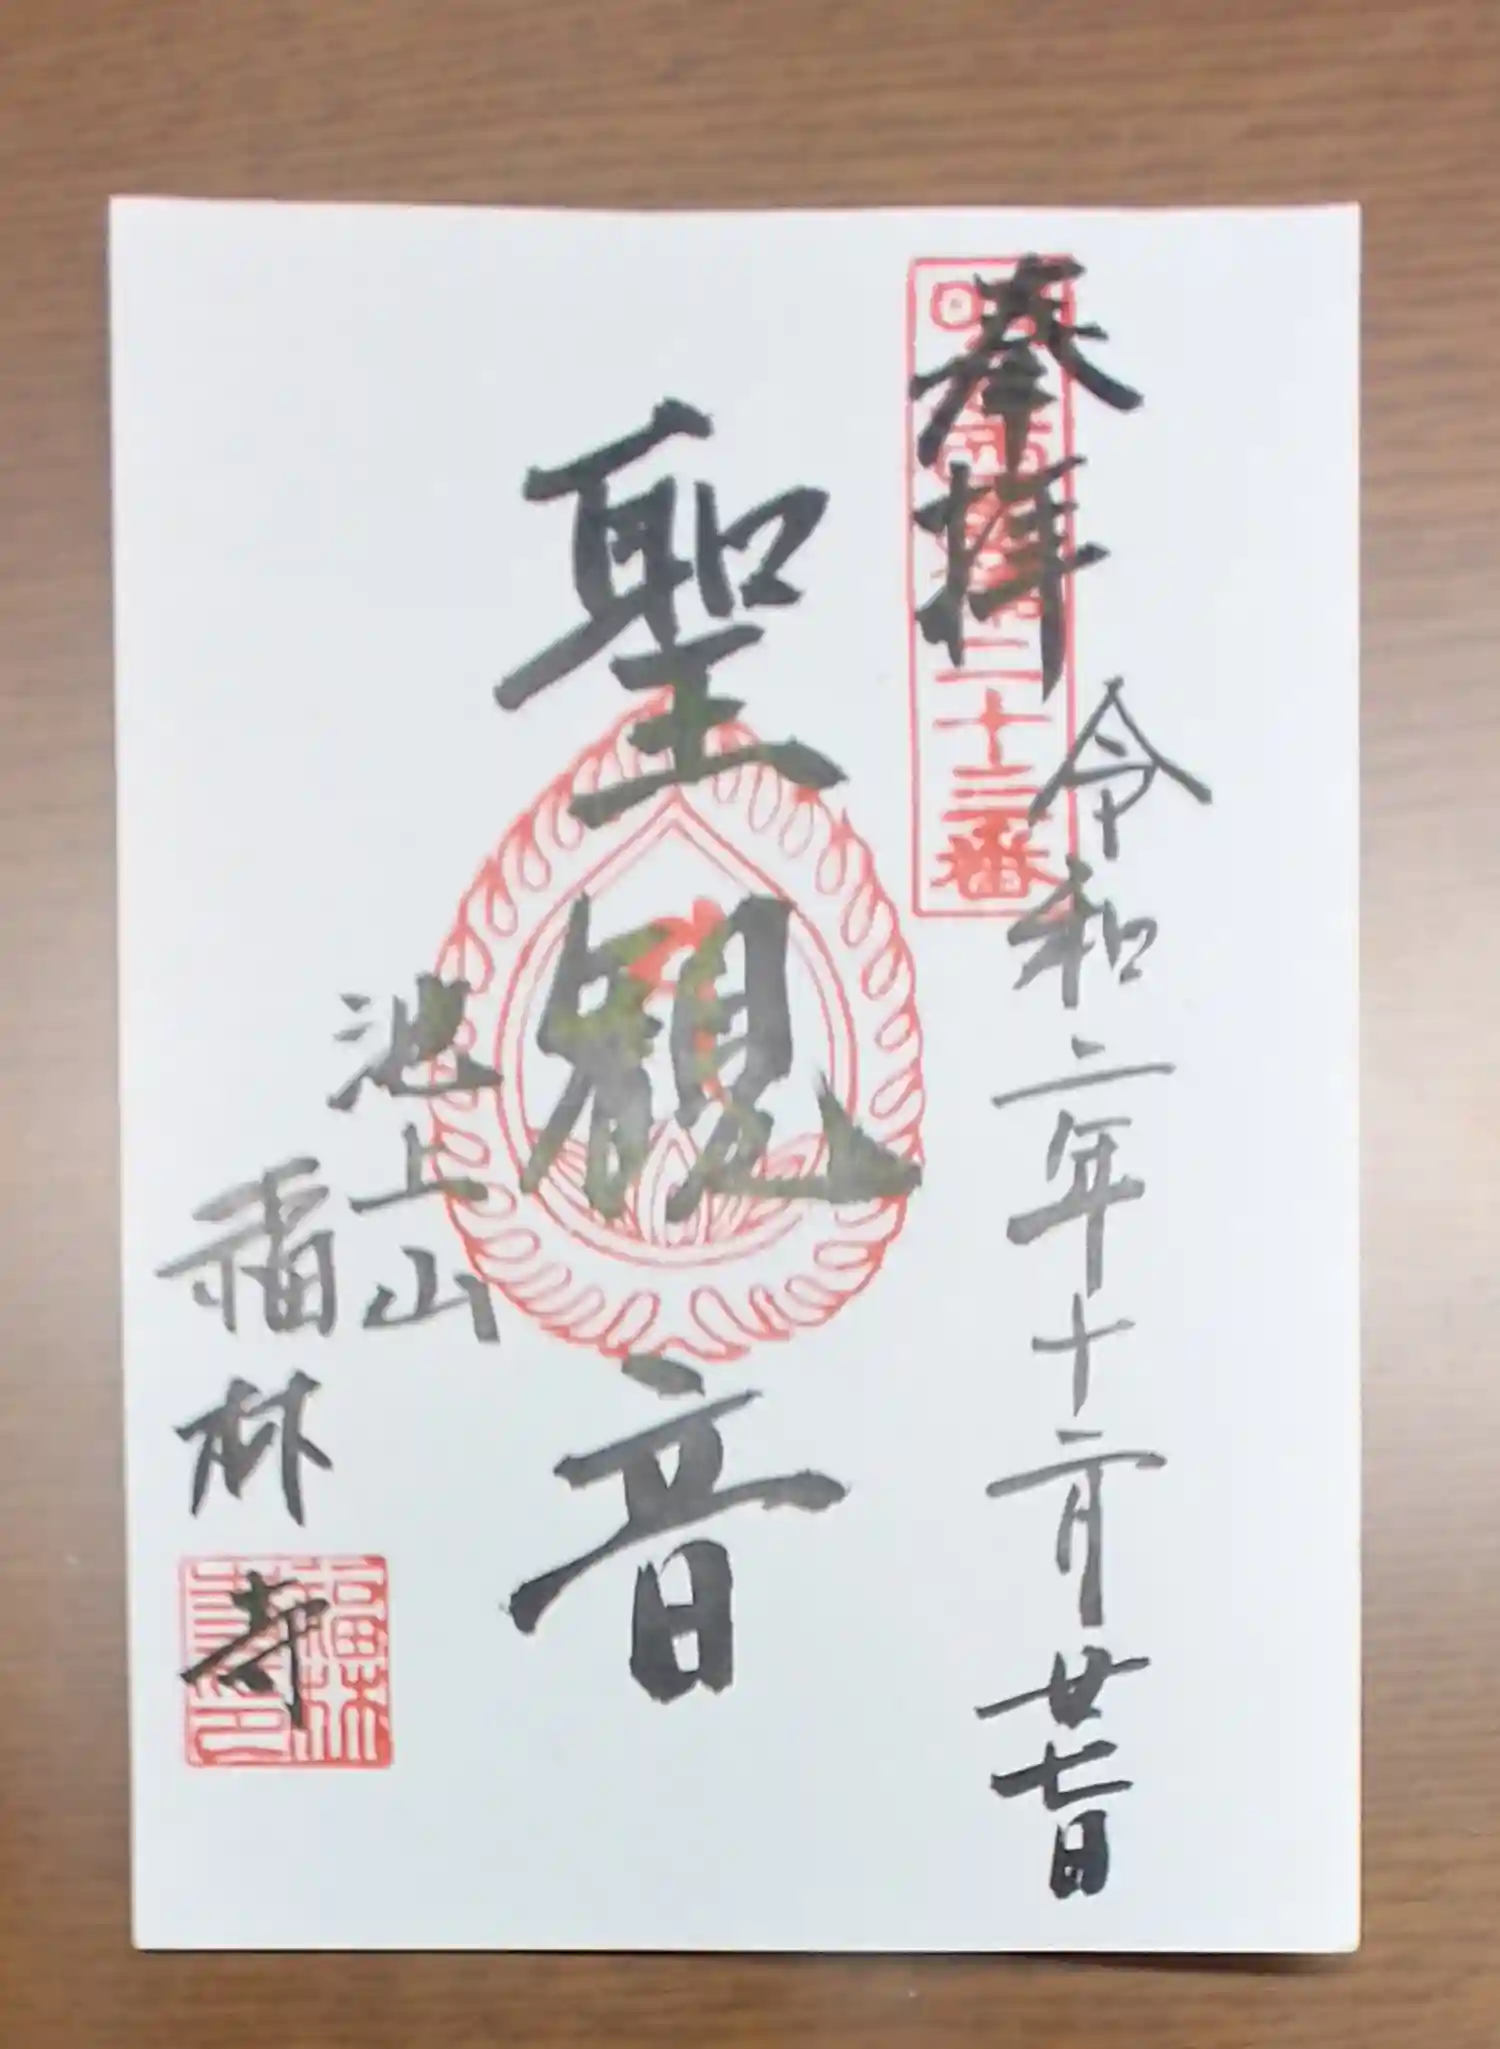 奉拝
二十三番
令和二年十二月廿七日
聖観音
池上山
福林寺